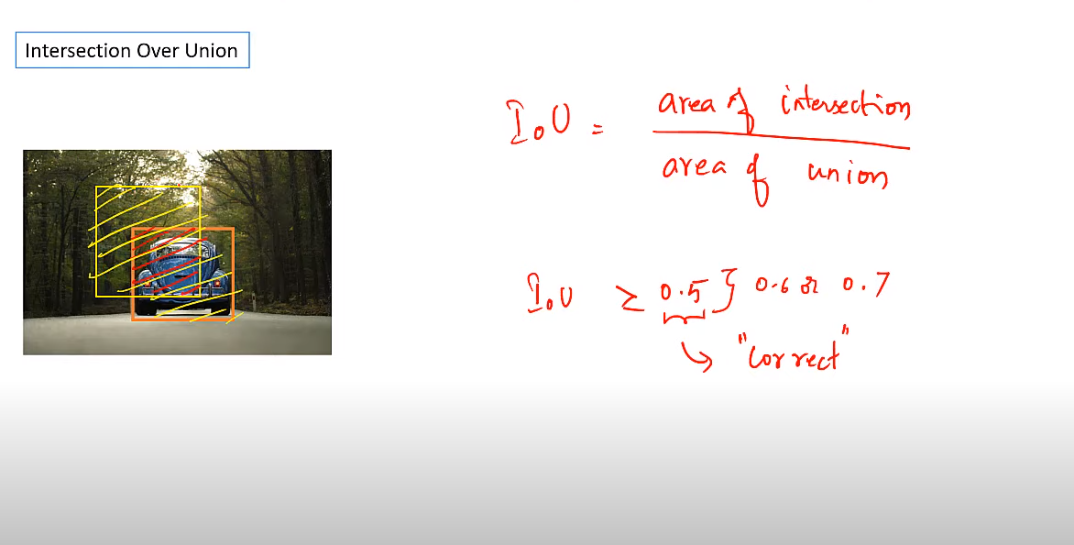 Intersection Over Union
IoU = area of intersection
area of union
IoU ≥ 0.5 } 0.6 or 0.7
"correct"